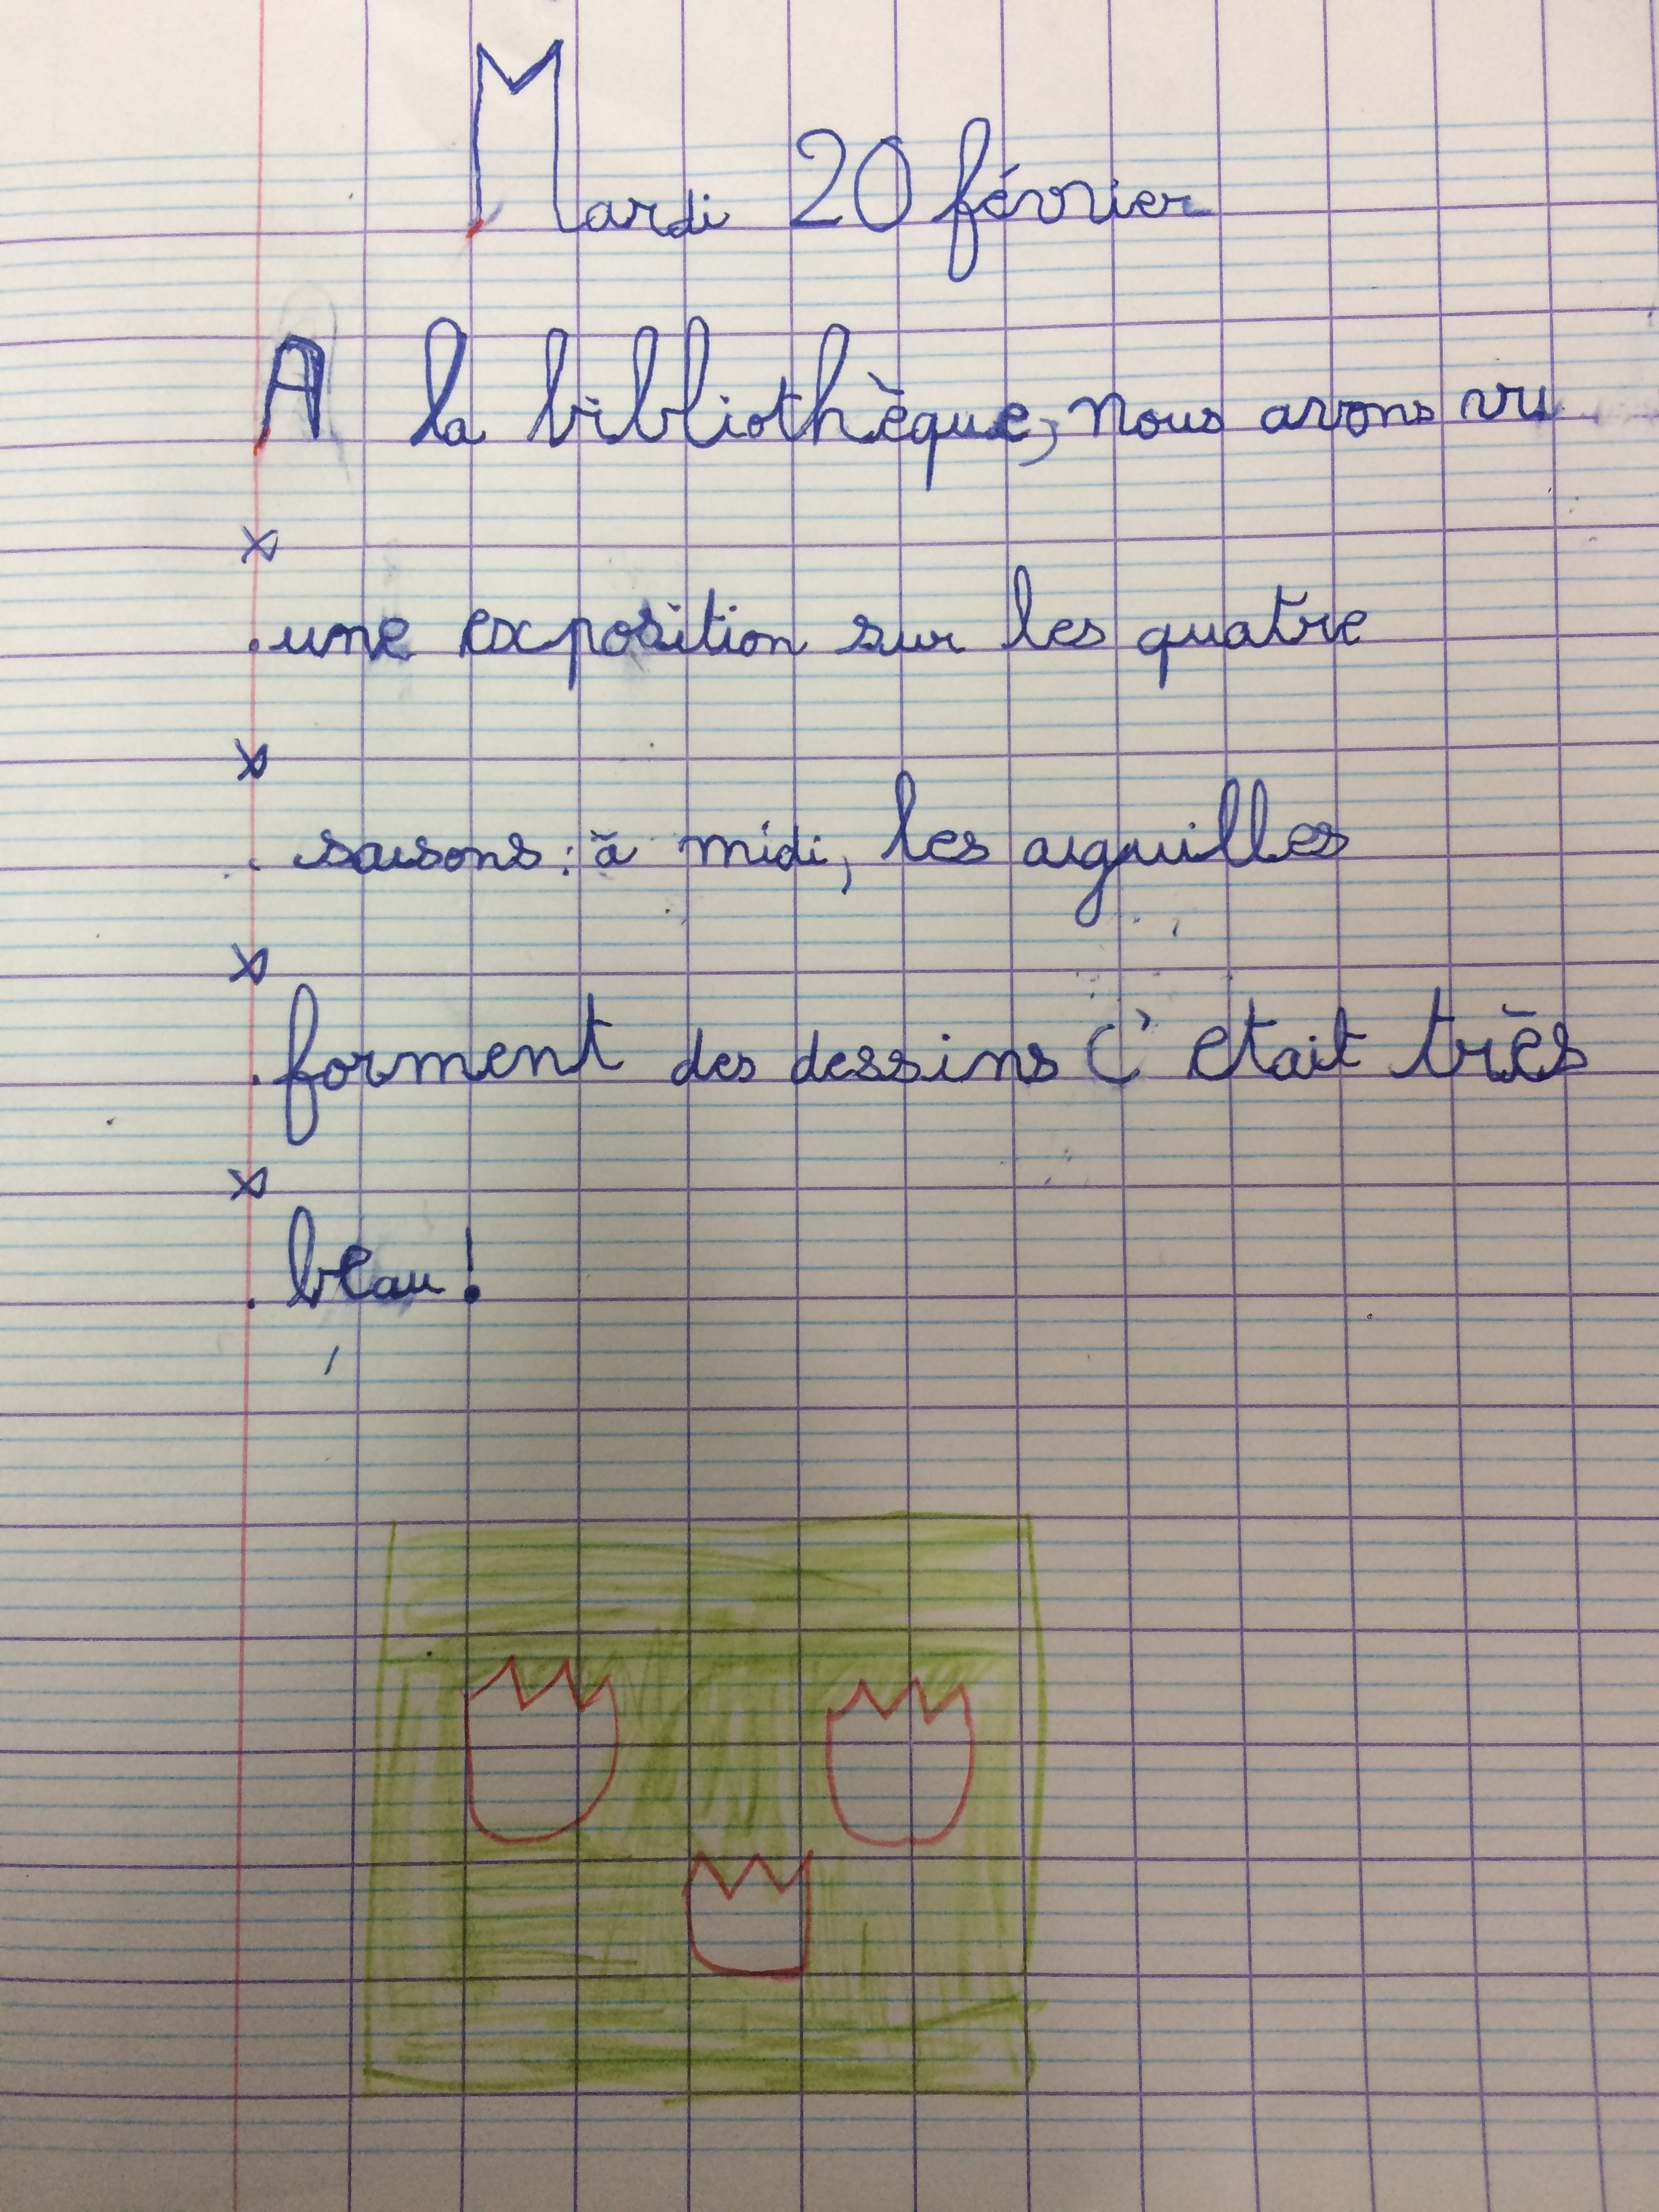 Mardi 20 février
A la bibliothèque, nous avons vu
une exposition sur les quatre
saisons : à midi, les aiguilles
forment des dessins C'etait très
beau !